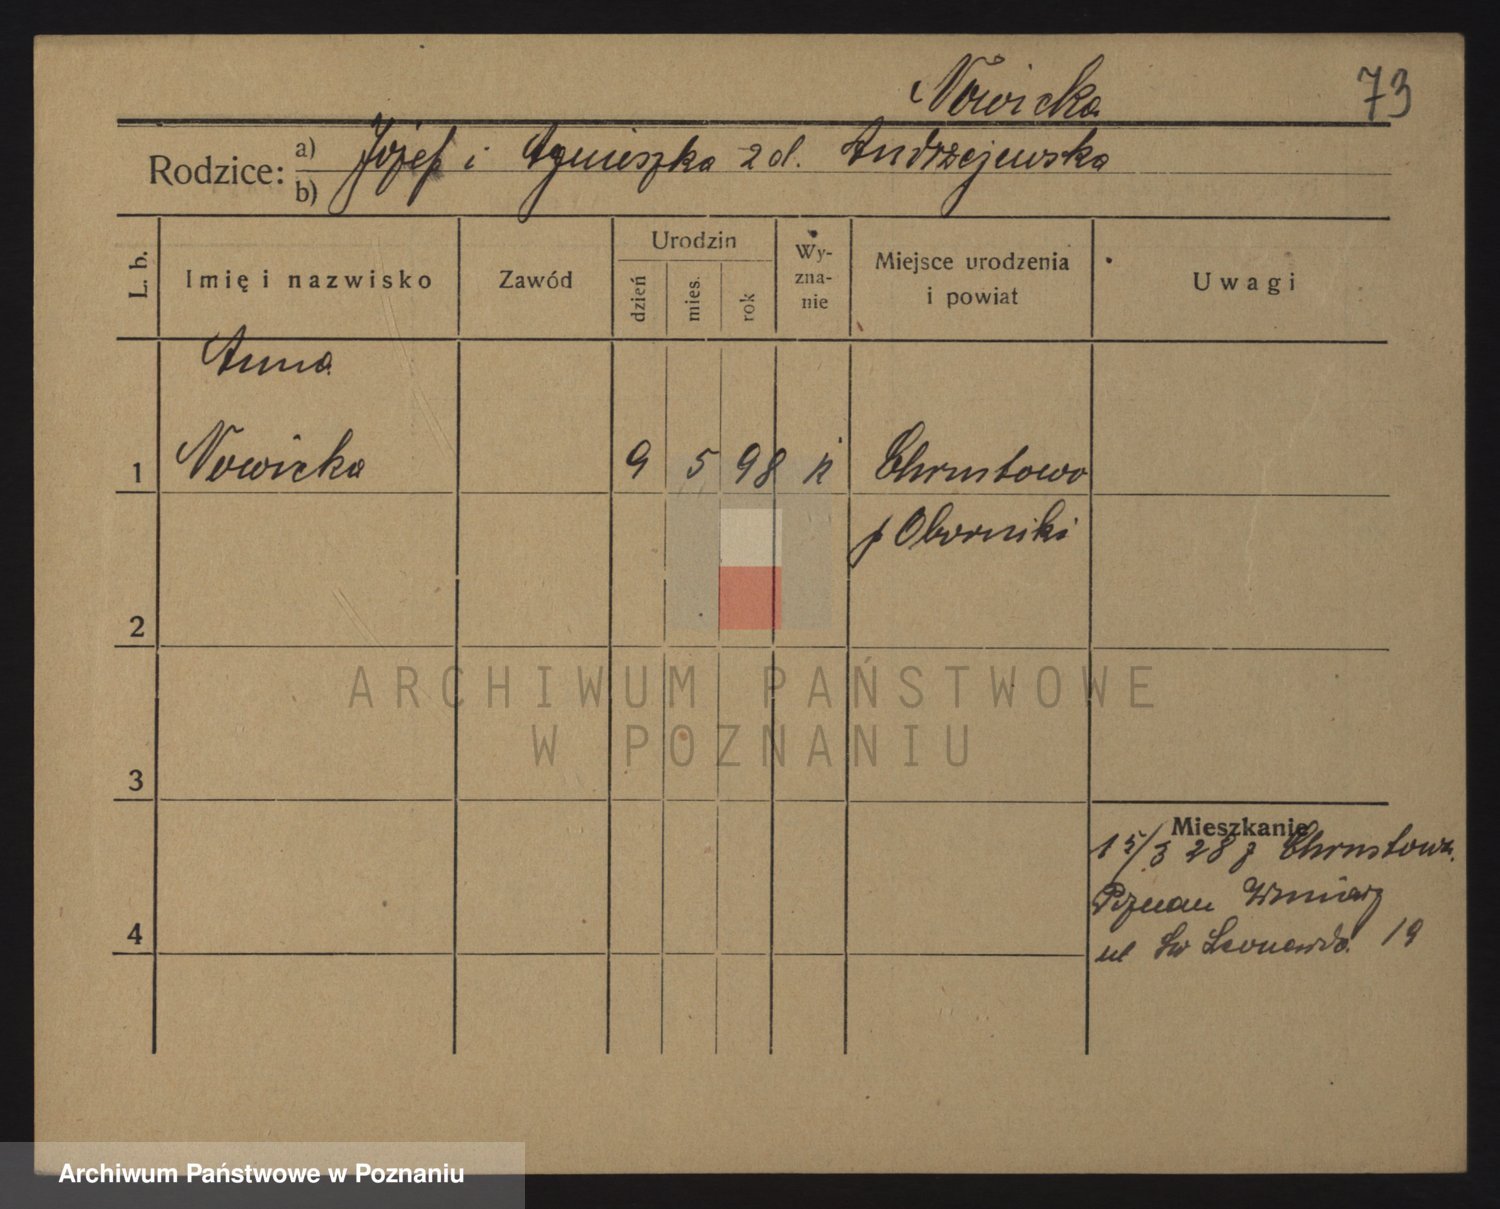 Nowicka 73
Rodzice: a) Józef i Agnieszka z d. Andrzejewska
b)
L. b. Imię i nazwisko Zawód Urodzin dzień mies. rok Wyznanie Miejsce urodzenia i powiat Uwagi
Anna
1 Nowicka 9 5 98 k Chrustowo
p Oborniki
2
3
Mieszkanie
15/3 28 z Chrustowa
Poznań Winiary
4
ul Św Leonarda 19
ARCHIWUM PAŃSTWOWE
W POZNANIU
Archiwum Państwowe w Poznaniu